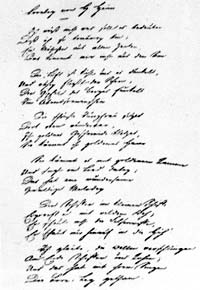 Ich weiß nicht was soll es bedeuten
Daß ich so traurig bin;
Ein Mährchen aus alten Zeiten,
Das kommt mir nicht aus dem Sinn.
Die Luft ist kühl und es dunkelt,
Und ruhig fließt der Rhein;
Der Gipfel des Berges funkelt
Im Abendsonnenschein.
Die schönste Jungfrau sitzet
Dort oben wunderbar,
Ihr goldnes Geschmeide blitzet,
Sie kämmt ihr goldenes Haar.
Sie kämmt es mit goldenem Kamme
Und singt ein Lied dabey,
Das hat eine wundersame
Gewaltige Melodey.
Den Schiffer im kleinen Schiffe
Ergreift es mit wildem Weh,
Er schaut nicht die Felsenriffe,
Er schaut nur hinauf in die Höh'
Ich glaube, die Wellen verschlingen
Am Ende Schiffer und Kahn,
Und das hat mit ihrem Singen
Die Lore-Ley gethan.